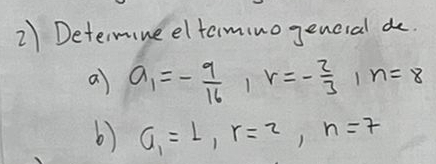 2) Determine el termino general de.
a) a₁ = - 9/16 , r = - 2/3 , n = 8
b) a₁ = 1 , r = 2 , n = 7